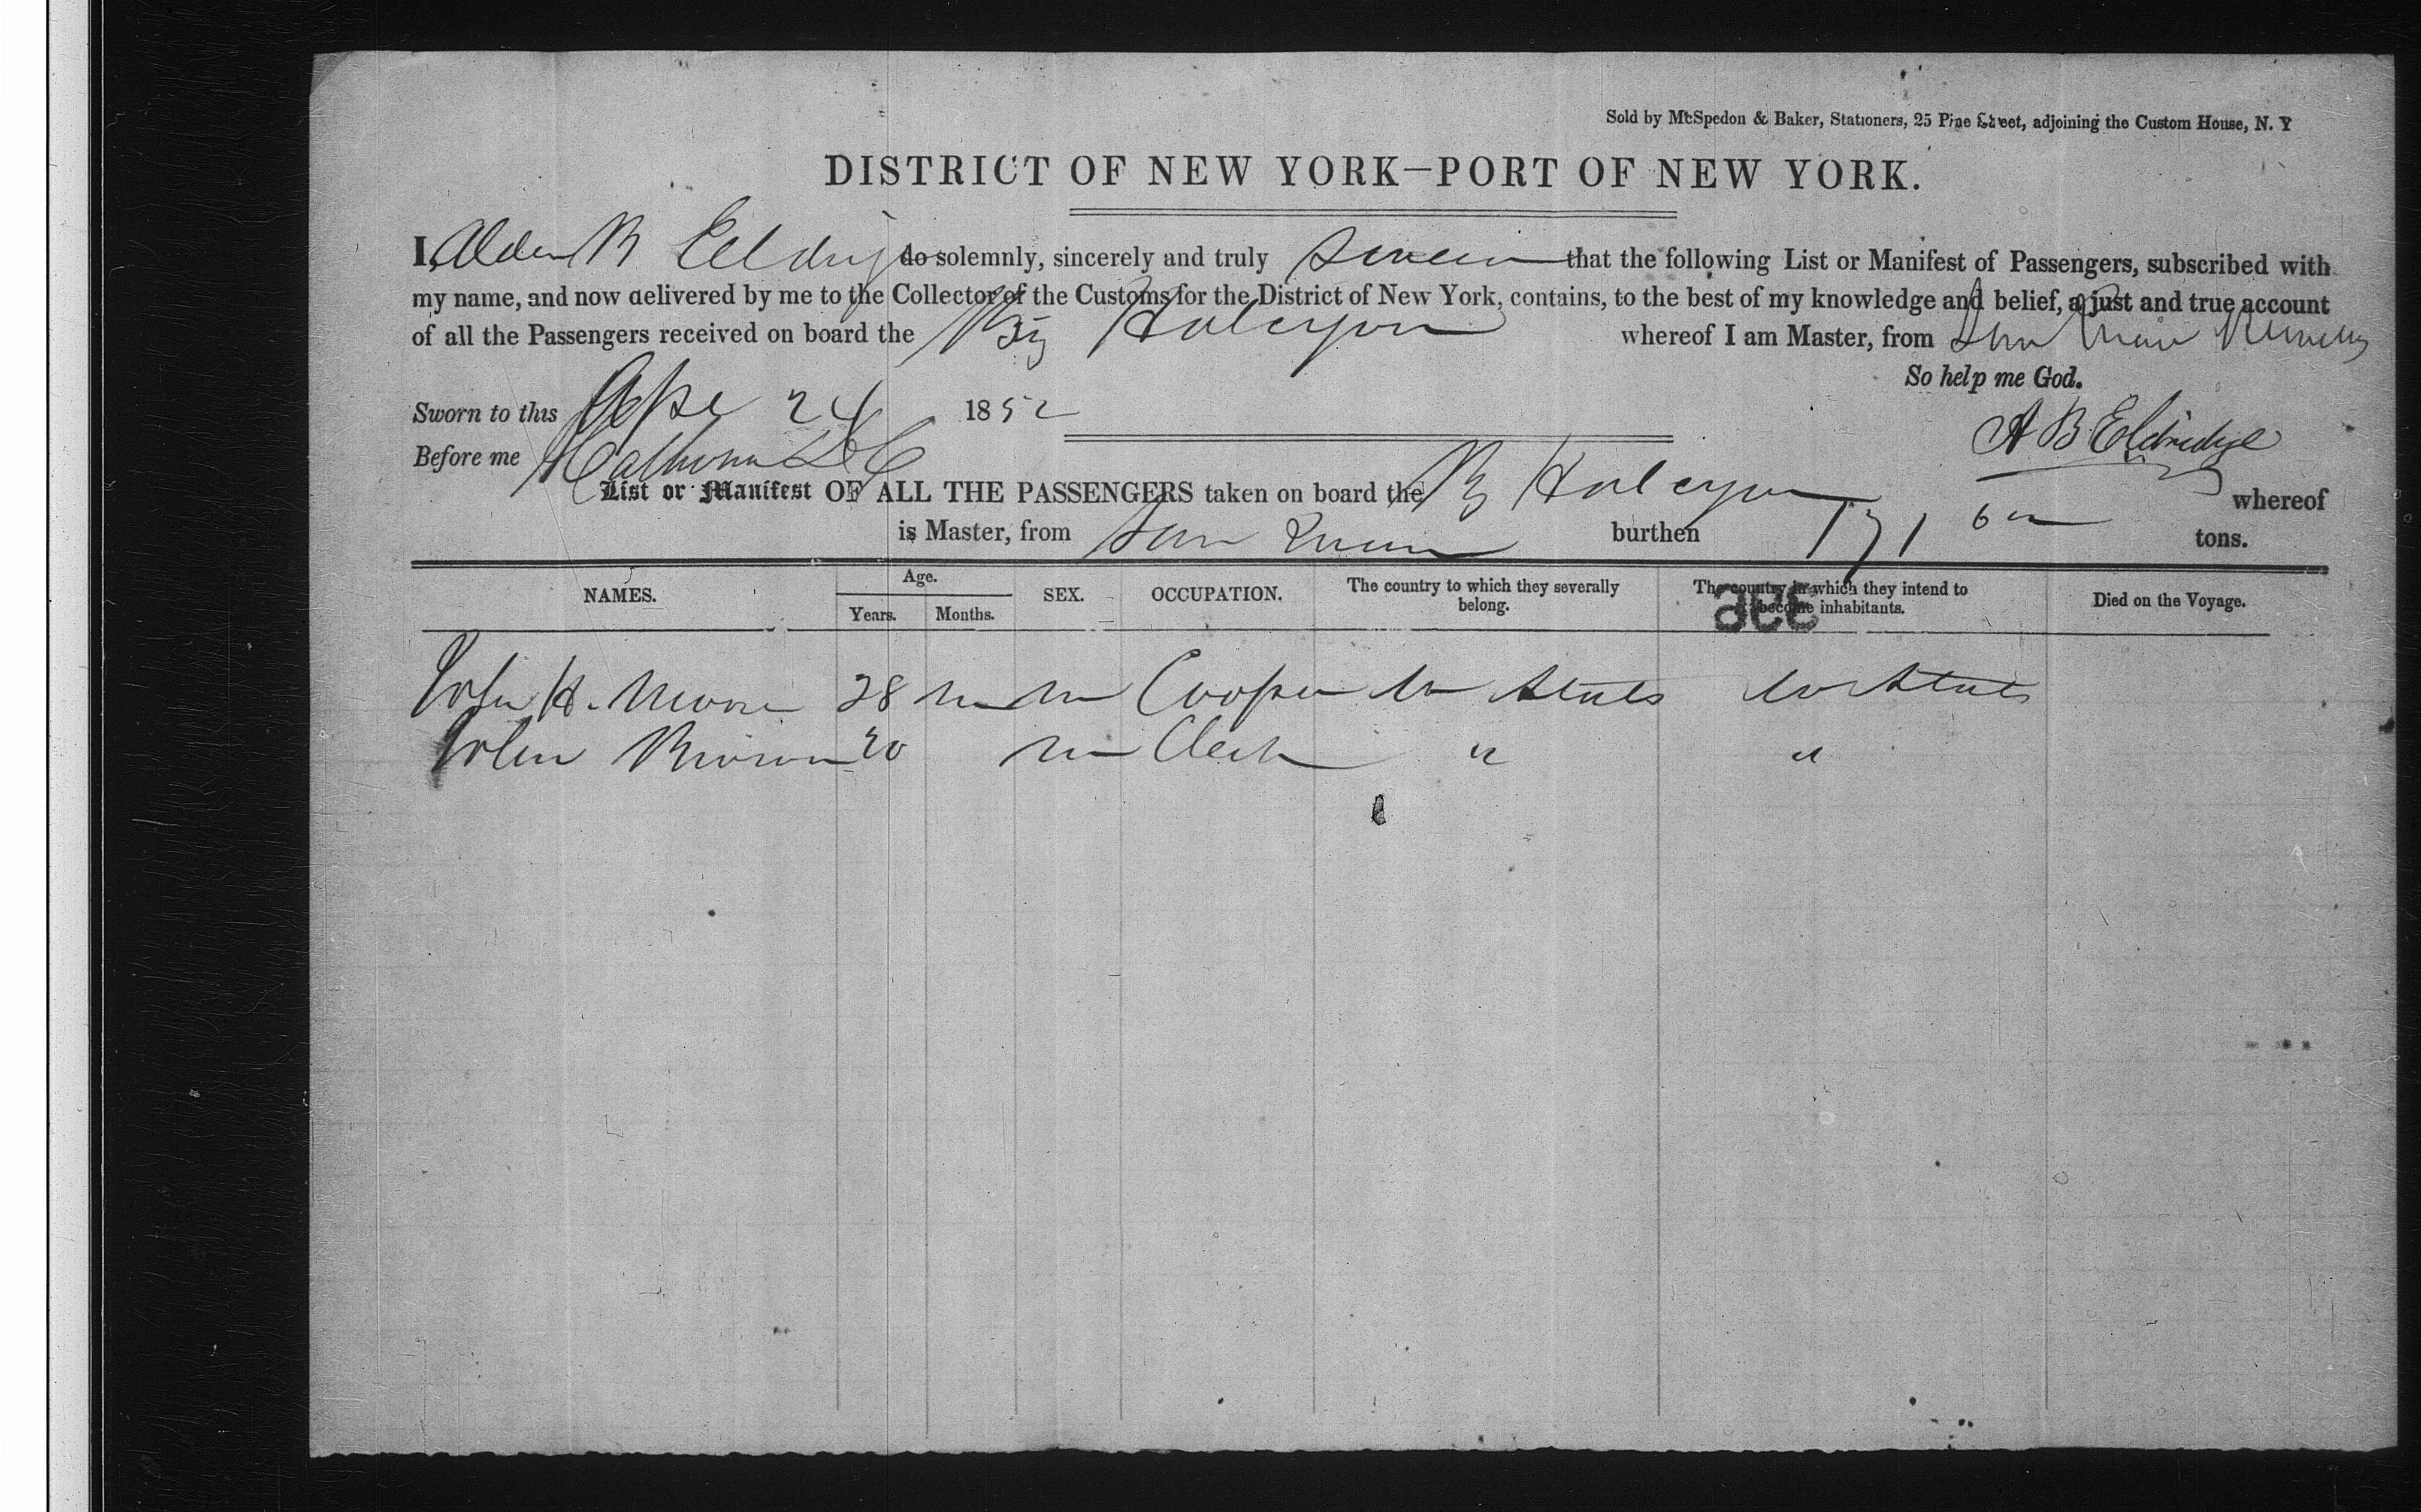 Sold by McSpedon & Baker, Stationers, 25 Pine Street, adjoining the Custom House, N. Y
DISTRICT OF NEW YORK—PORT OF NEW YORK.
I, Alden B Eeldrig do solemnly, sincerely and truly swear that the following List or Manifest of Passengers, subscribed with
my name, and now delivered by me to the Collector of the Customs for the District of New York, contains, to the best of my knowledge and belief, a just and true account
of all the Passengers received on board the Brig Halcyon whereof I am Master, from San Juan
So help me God.
Sworn to this Apr 24 1852
A B Eldridge
Before me
List or Manifest OF ALL THE PASSENGERS taken on board the Bg Halcyon whereof
is Master, from San Juan burthen 171 tons.
NAMES. Age. Years. Months. SEX. OCCUPATION. The country to which they severally belong. The country in which they intend to become inhabitants. Died on the Voyage.
336
John H. Moore 28 m Cooper Un States Un States
John Brown 20 m Clerk " "